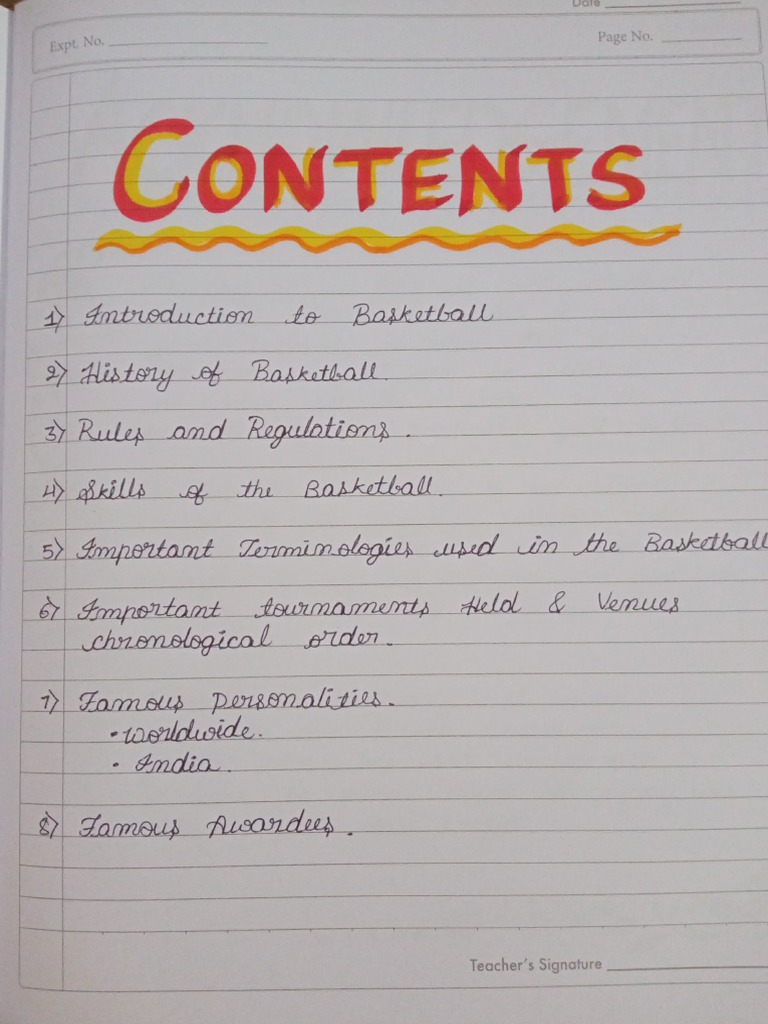 Date
Expt. No.
Page No.
CONTENTS
1) Introduction to Basketball
2) History of Basketball.
3) Rules and Regulations.
4) Skills of the Basketball.
5) Important Terminologies used in the Basketball
6) Important tournaments Held & Venues
chronological order.
7) Famous personalities.
• worldwide.
• India.
8) Famous Awardees.
Teacher's Signature